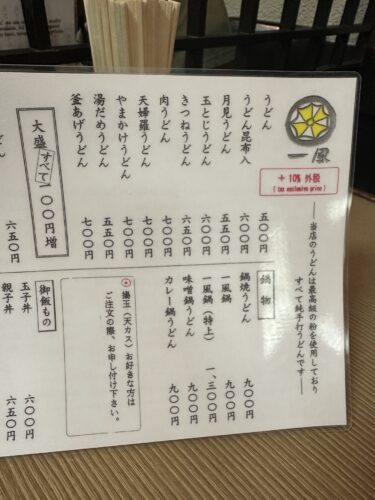 一風
+10%外税
( tax exclusive price )
当店のうどんは最高級の粉を使用しており
すべて純手打うどんです
うどん 五〇〇円
うどん昆布入 六〇〇円
月見うどん 五五〇円
玉とじうどん 六〇〇円
きつねうどん 六五〇円
肉うどん 七〇〇円
天婦羅うどん 七〇〇円
やまかけうどん 七〇〇円
湯だめうどん 五五〇円
釜あげうどん 七〇〇円
大盛すべて一〇〇円増
六五〇円
鍋物
鍋焼うどん 九〇〇円
一風鍋 九〇〇円
一風鍋(特上) 一、三〇〇円
味噌鍋うどん 九〇〇円
カレー鍋うどん 九〇〇円
揚玉(天カス)お好きな方は
ご注文の際、お申し付け下さい。
御飯もの
玉子丼 六〇〇円
親子丼 六五〇円